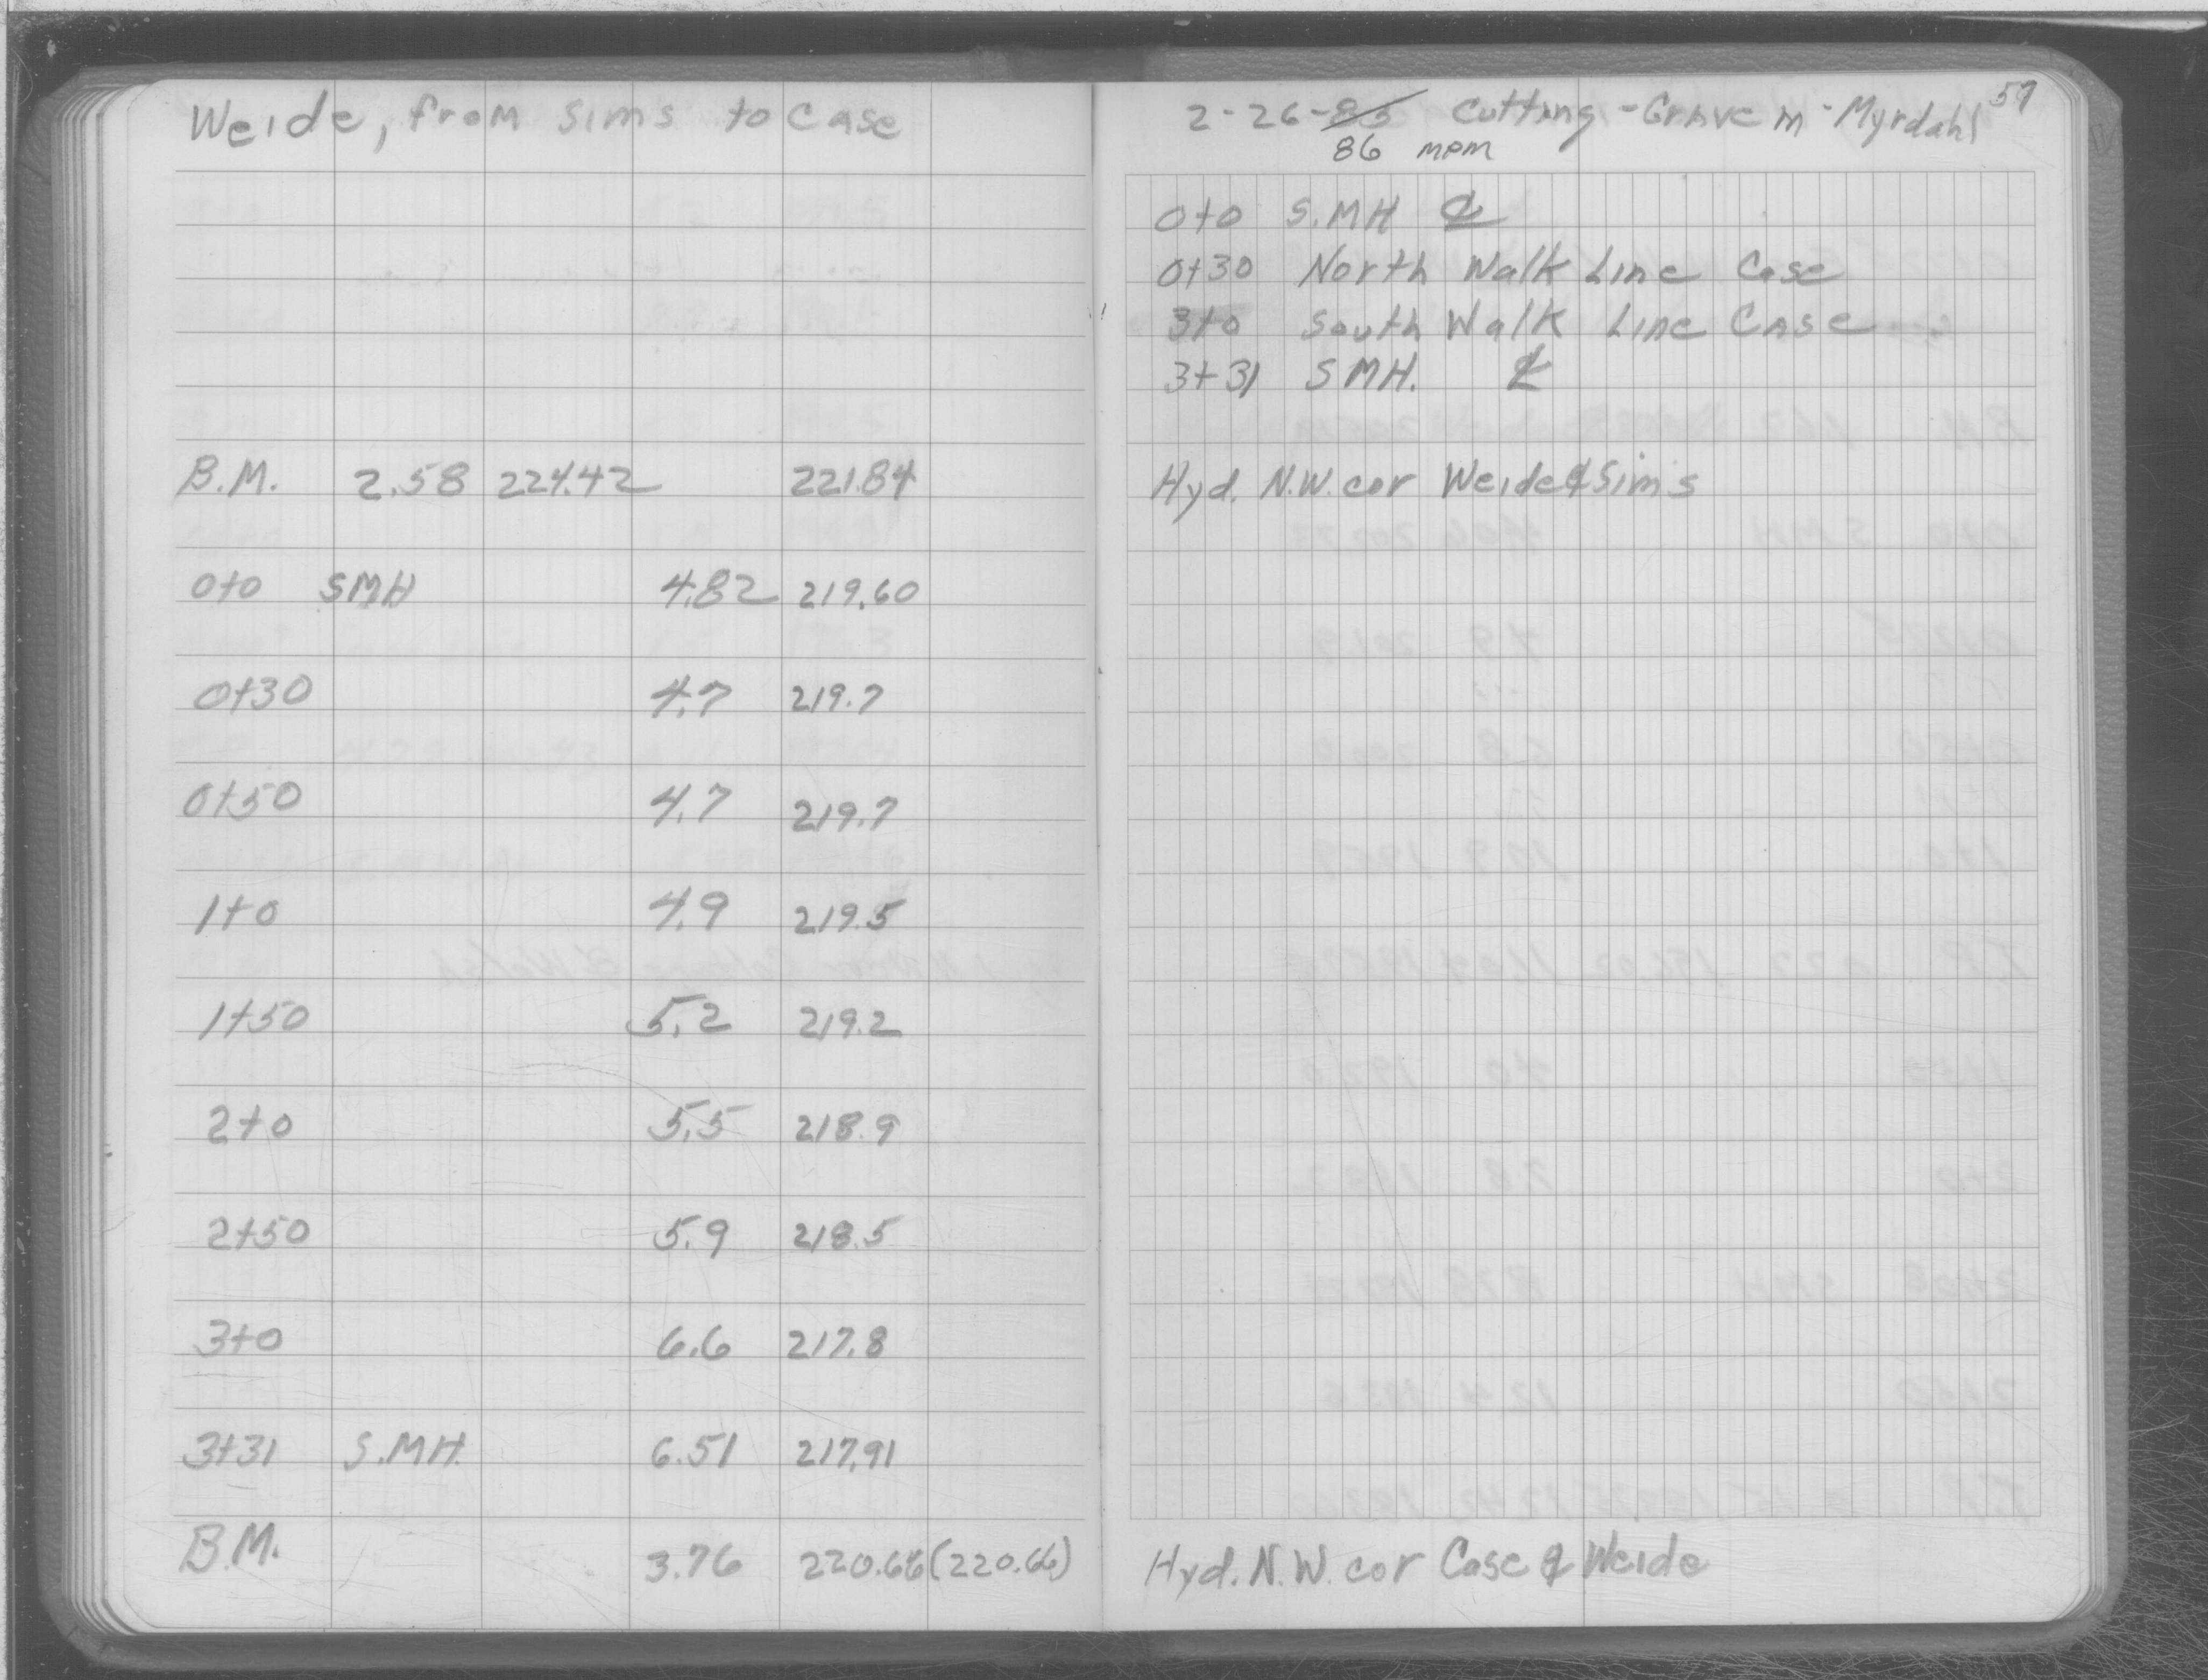 Weide, from Sims to Case
B.M. 2.58 224.42 221.84
0+0 SMH 4.82 219.60
0+30 4.7 219.7
0+50 4.7 219.7
1+0 4.9 219.5
1+50 5.2 219.2
2+0 5.5 218.9
2+50 5.9 218.5
3+0 6.6 217.8
3+31 S.MH. 6.51 217.91
B.M. 3.76 220.66 (220.66)
57
2-26-85 Cutting - Gravem - Myrdahl
86 MPM
0+0 S.MH ℄
0+30 North Walk Line Case
3+0 South Walk Line Case
3+31 SMH. ℄
Hyd. N.W. cor Weide & Sims
Hyd. N.W. cor Case & Weide